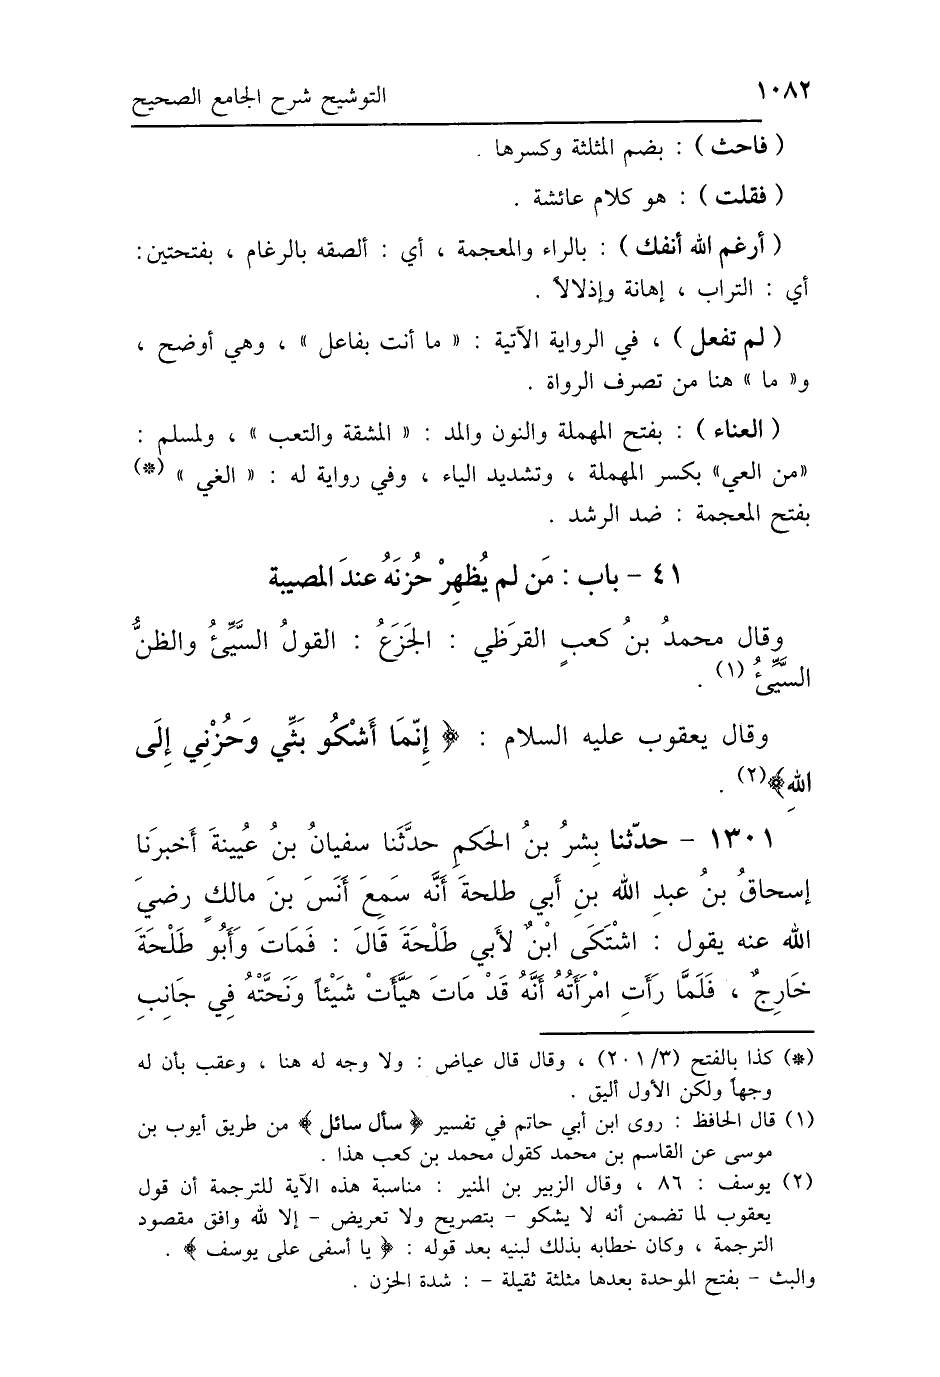 ١٠٨٢ التوشيح شرح الجامع الصحيح
( فاحث ) : بضم المثلثة وكسرها .
( فقلت ) : هو كلام عائشة .
( أرغم الله أنفك ) : بالراء والمعجمة ، أي : ألصقه بالرغام ، بفتحتين :
أي : التراب ، إهانة وإذلالاً .
( لم تفعل ) ، في الرواية الآتية : « ما أنت بفاعل » ، وهي أوضح ،
و« ما » هنا من تصرف الرواة .
( العناء ) : بفتح المهملة والنون والمد : « المشقة والتعب » ، ولمسلم :
«من العي» بكسر المهملة ، وتشديد الياء ، وفي رواية له : « الغي » (*)
بفتح المعجمة : ضد الرشد .
٤١ - باب : مَن لم يُظهِرْ حُزنَهُ عندَ المصيبة
وقال محمدُ بنُ كعبٍ القرَظي : الجَزَعُ : القولُ السَّيِّئُ والظنُّ
السَّيِّئُ (١) .
وقال يعقوب عليه السلام : ﴿ إِنّمَا أَشْكُو بَثِّي وَحُزْنِي إِلَى
اللهِ﴾(٢) .
١٣٠١ - حدّثنا بِشرُ بنُ الحَكمِ حدَّثَنا سفيانُ بنُ عُيينةَ أخبرَنا
إسحاقُ بنُ عبدِ الله بنِ أبي طلحةَ أنَّه سَمِعَ أنَسَ بنَ مالكٍ رضيَ
الله عنه يقول : اشْتَكَى ابْنٌ لأَبي طَلْحَةَ قَالَ : فَمَاتَ وَأَبُو طَلْحَةَ
خَارِجٌ ، فَلَمَّا رَأَتِ امْرَأَتُهُ أنَّهُ قَدْ مَاتَ هَيَّأَتْ شَيْئاً وَنَحَّتْهُ فِي جَانِبِ
(*) كذا بالفتح (٢٠١/٣) ، وقال قال عياض : ولا وجه له هنا ، وعقب بأن له
وجهاً ولكن الأول أليق .
(١) قال الحافظ : روى ابن أبي حاتم في تفسير ﴿ سأل سائل ﴾ من طريق أيوب بن
موسى عن القاسم بن محمد كقول محمد بن كعب هذا .
(٢) يوسف : ٨٦ ، وقال الزبير بن المنير : مناسبة هذه الآية للترجمة أن قول
يعقوب لما تضمن أنه لا يشكو - بتصريح ولا تعريض - إلا لله وافق مقصود
الترجمة ، وكان خطابه بذلك لبنيه بعد قوله : ﴿ يا أسفى على يوسف ﴾ .
والبث - بفتح الموحدة بعدها مثلثة ثقيلة - : شدة الحزن .